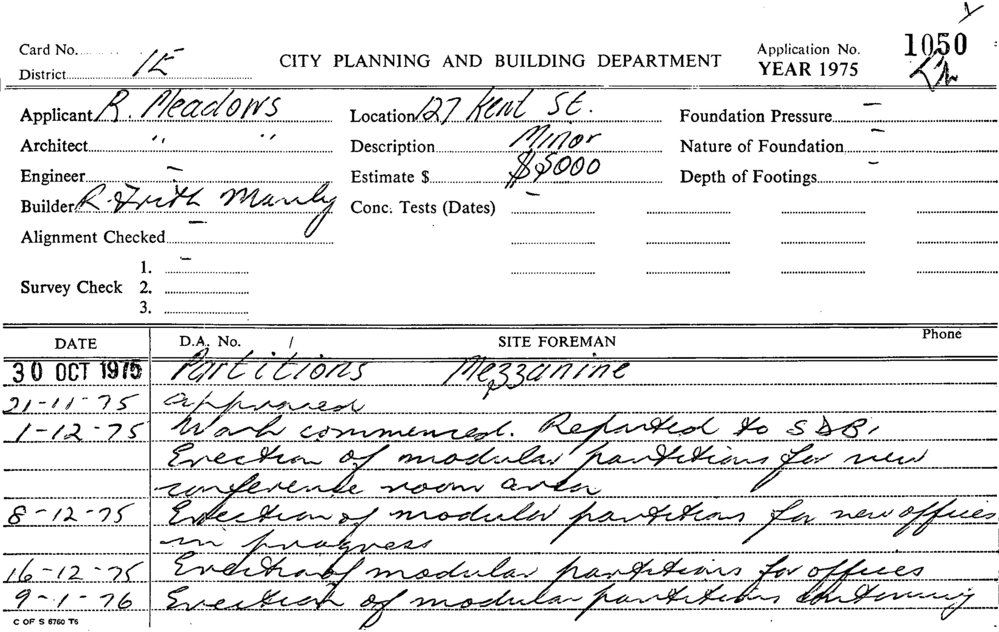 Card No.
District 1E
CITY PLANNING AND BUILDING DEPARTMENT
Application No. 1050
YEAR 1975
Applicant R. Meadows
Location 127 Kent St.
Foundation Pressure –
Architect " "
Description Minor
Nature of Foundation –
Engineer –
Estimate $ $5000
Depth of Footings –
Builder R. Frith Manly
Conc. Tests (Dates) –
Alignment Checked –
Survey Check
1. –
2.
3.
DATE D.A. No. / SITE FOREMAN Phone
30 OCT 1975 Partitions Mezzanine
21-11-75 approved
1-12-75 Work commenced. Reported to SDB,
Erection of modular partitions for new
conference room area
8-12-75 Erection of modular partitions for new offices
in progress
16-12-75 Erection of modular partitions for offices
9-1-76 Erection of modular partitions continuing
C OF S 6760 T6